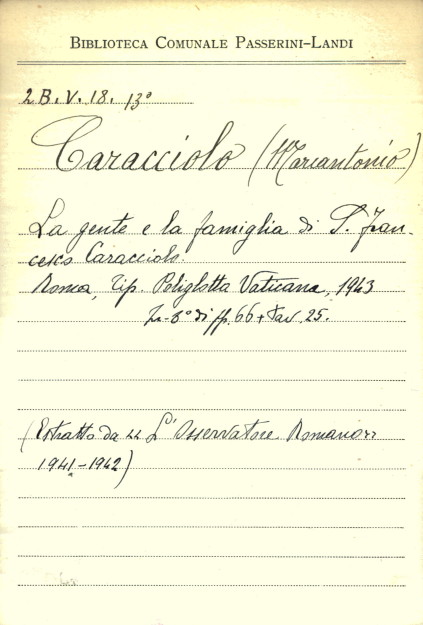 BIBLIOTECA COMUNALE PASSERINI-LANDI
2B.V.18. 13°
Caracciolo (Marcantonio)
La gente e la famiglia di S. Fran-
cesco Caracciolo.
Roma, Tip. Poliglotta Vaticana, 1943
In-8° di pp. 66 + tav. 25.
(Estratto da "L'Osservatore Romano"
1941-1942)